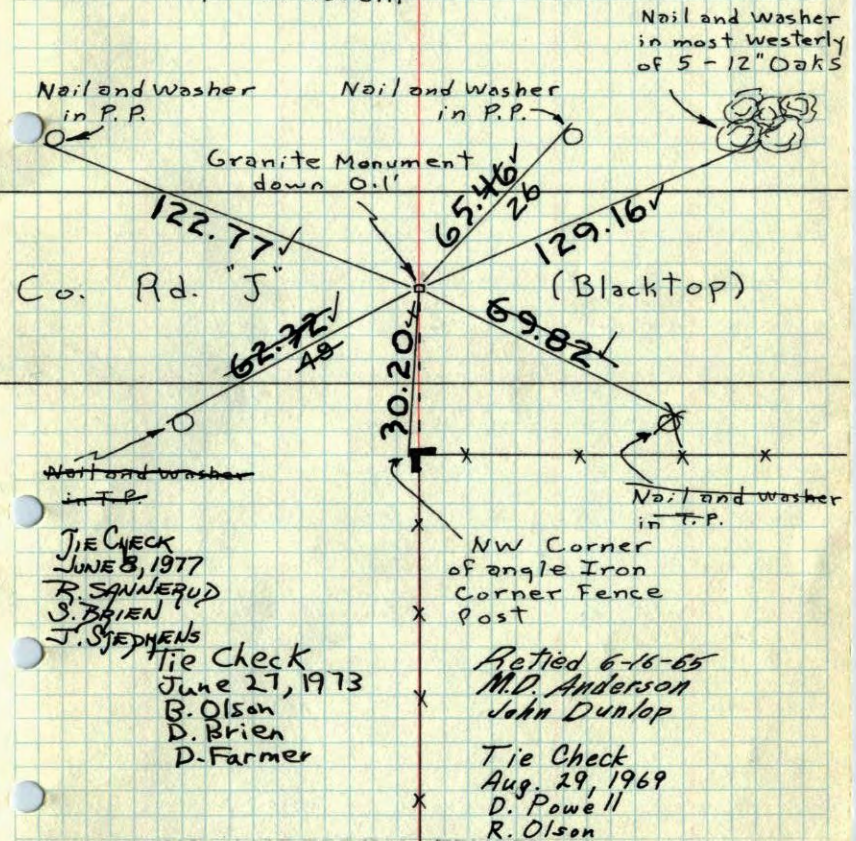 Nail and Washer
in most Westerly
of 5 - 12" Oaks
Nail and Washer
in P.P.
Nail and Washer
in P.P.
Granite Monument
down 0.1'
122.77
65.46
26
129.16
Co. Rd. "J"
(Blacktop)
62.32
48
30.20
69.82
Nail and Washer
in T.P.
Nail and Washer
in T.P.
NW Corner
of angle Iron
Corner Fence
Post
TIE CHECK
JUNE 8, 1977
R. SANNERUD
S. BRIEN
Tie Check
June 27, 1973
B. Olson
D. Brien
D. Farmer
Retied 6-16-65
M.D. Anderson
John Dunlop
Tie Check
Aug. 29, 1969
D. Powell
R. Olson